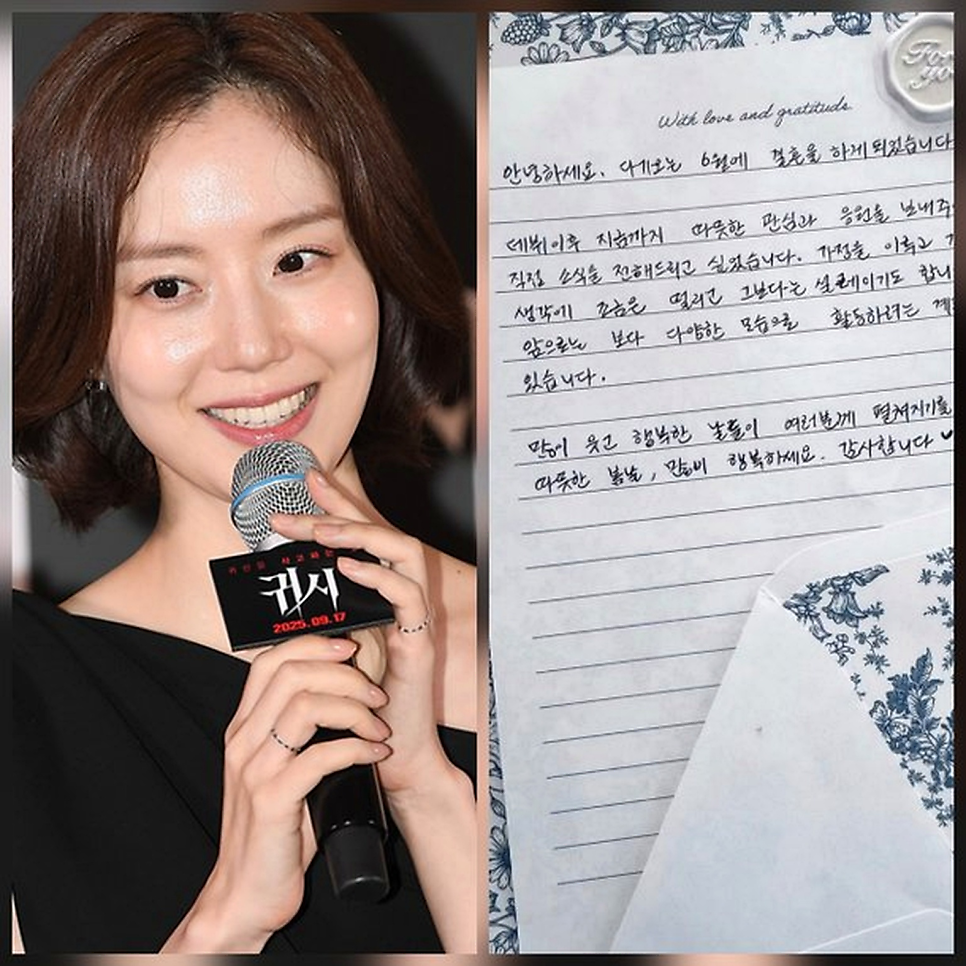 귀신을 사고파는
귀시
2025.09.17
For you
With love and gratitude
안녕하세요. 다가오는 6월에 결혼을 하게 되었습니다
데뷔이후 지금까지 따뜻한 관심과 응원을 보내주
직접 소식을 전해드리고 싶었습니다. 가정을 이루고
생각에 조금은 떨리고 그보다는 설레이기도 합니
앞으로는 보다 다양한 모습으로 활동하려는 계
있습니다.
많이 웃고 행복한 날들이 여러분께 펼쳐지기를
따뜻한 봄날, 많이 행복하세요. 감사합니다